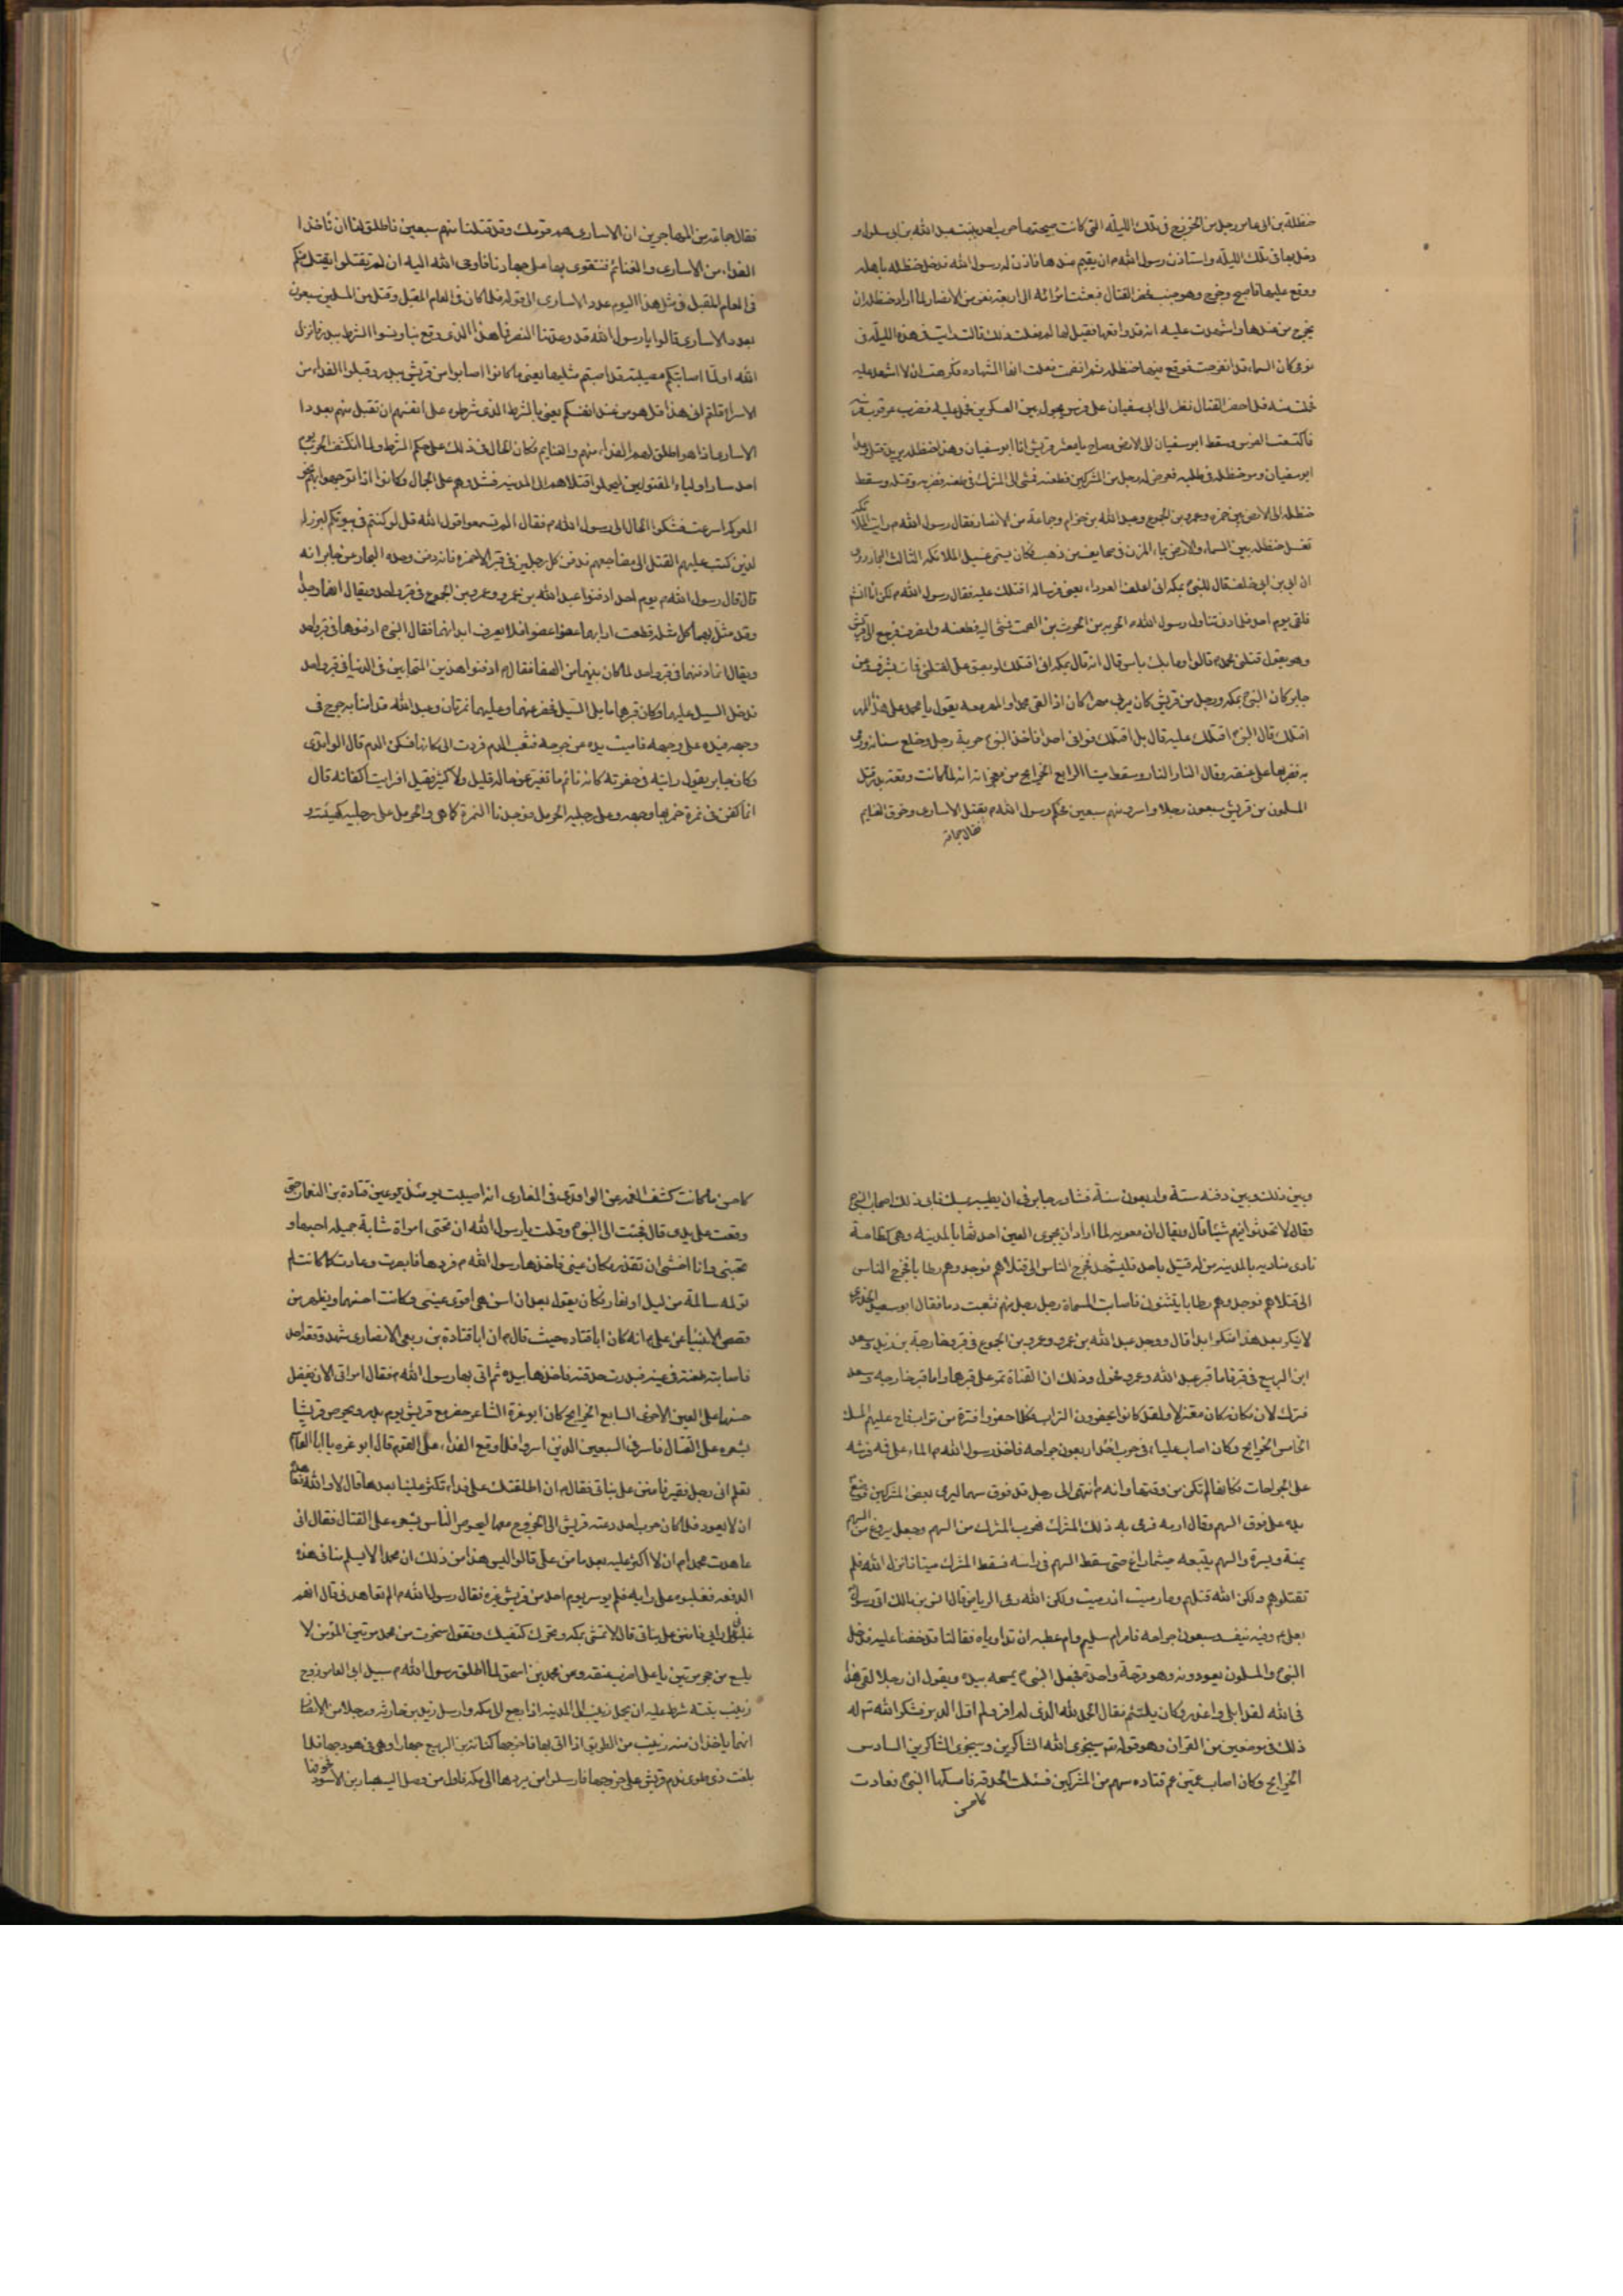 حنظلة بن ابى عامر رجل من الخزرج فى تلك الليلة التى كانت صبيحتها حرب احد ببنت عبد الله بن ابى سلول و
دخل بها فى تلك الليلة واستاذن رسول الله م ان يقيم عندها فاذن له رسول الله فدخل حنظله باهله
ووقع عليها فاصبح وخرج وهو جنب فحضر القتال فبعثت امرأته الى اربعة نفر من الانصار لما اراد حنظله ان
يخرج من عندها واشهدت عليه انه قد واقعها فقيل لها لم فعلت ذلك قالت رايت فى هذه الليلة فى
نومى كان السماء قد انفرجت فوقع فيها حنظله ثم انضمت فعلمت انها الشهاده فكرهت ان لا اشهد عليه
فحملت منه فلما حضر القتال نظر الى ابى سفيان على فرس يجول بين العسكرين فحمل عليه فضرب عرقوب فرسه
فاكتسعت الفرس وسقط ابو سفيان الى الارض وصاح يا معشر قريش انا ابو سفيان وهذا حنظله يريد قتلى وعدا
ابو سفيان ومر حنظله فى طلبه فعرض له رجل من المشركين فطعنه فمشى الى المشرك فى طعنه فضربه وقتله وسقط
حنظله الى الارض بين حمزه وعمرو بن الجموح وعبد الله بن حزام وجماعة من الانصار فقال رسول الله م رايت الملائكه
تغسل حنظله بين السماء والارض بماء المزن فى صحايف من ذهب فكان يسمى غسيل الملائكه الثالث البحار روى
ان ابى بن ابى خلف قال للنبى م بمكه انى اعلف العوداء يعنى فرسا له اقتلك عليه فقال رسول الله م لكن انا انشم
فلقى يوم احد فلما دنى تناول رسول الله م الحربه من الحرث بن الصمت فمشى اليه فطعنه وانصرف فرجع الى قريش
وهو يقول قتلنى محمد م قالوا وما بك باس قال انه قال بمكه انى اقتلك لو بصق على لقتلنى فمات بشرف وعن
جابر كان النبى م بمكه ورجل من قريش كان يربى مهرا كان اذا لقى محمدا والمهر معه يقول يا محمد على هذا المهر
اقتلك قال النبى م اقتلك عليه قال بل اقتلك فوافى احدا فاخذ النبى م حربة رجل وخلع سنانه ورمى
به فضربها على عنقه وقال النار النار وسقط ميتا الرابع الخرايج من معجزاته انه لما كانت وقعة بدر قتل
المسلمون من قريش سبعون رجلا واسروا منهم سبعين فحكم رسول الله م بقتل الاسارى وحرق الغنايم
فقال جماعة
فقال جماعة من المهاجرين ان الاسارى هم قومك وقد قتلنا منهم سبعين فاطلق لنا ان نأخذ ا
الفداء من الاسارى والغنائم فنتقوى بها على جهادنا فاوحى الله اليه ان لم يقتلوا يقتل منكم
فى العام المقبل فى مثل هذا اليوم عدد الاسارى الى قوله فلما كان فى العام المقبل وقتل من المسلمين سبعون
بعدد الاسارى قالوا يا رسول الله قد وعدتنا النصر فما هذا الذى وقع بنا ونسوا الشرط ببدر فانزل
الله اولما اصابتكم مصيبة قد اصبتم مثليها يعنى ما كانوا اصابوا من قريش ببدر وقبلوا الفداء من
الاسرا قلتم انى هذا قل هو من عند انفسكم يعنى بالشرط الذى شرطوه على انفسهم ان تقبل منهم بعدد ا
الاسارى اذا هو اطلق لهم الفداء منهم والغنايم فكان الحال فى ذلك على حكم الشرط ولما انكشف الحرب يوم
احد سار اولياء المقتولين ليحملوا قتلاهم الى المدينه فشدوهم على الجمال وكانوا اذا توجهوا بهم نحو
المعركه اسرعت فشكوا الحال الى رسول الله م فقال الم تسمعوا قول الله قل لو كنتم فى بيوتكم لبرز ا
لذين كتب عليهم القتل الى مضاجعهم فدفن كل رجلين فى قبر الا حمزه فانه دفن وحده البحار عن جابر انه
قال قال رسول الله م يوم احد ادفنوا عبد الله بن عمرو وعمرو بن الجموح فى قبر واحد ويقال انهما وجدا
وقد مثل بهما كل مثله قطعت ارابهما عضوا عضوا فلا يعرف ابدانهما فقال النبى م ادفنوهما فى قبر واحد
ويقال انما دفنهما فى قبر واحد لما كان بينهما من الصفا فقال م ادفنوا هذين المتحابين فى الدنيا فى قبر واحد
فدخل السيل عليهما وكان قبرهما مما يلى السيل فحفر عنهما وعليهما نمرتان وعبد الله قد اصابه جرح فى
وجهه فيده على وجهه فاميطت يده عن جرحه فثعب الدم فردت الى مكانها فسكن الدم قال الواقدى
وكان جابر يقول رايته فى حفرته كانه نائم ما تغير من حاله قليل ولا كثير فقيل افرايت اكفانه قال
انما كفن فى نمرة خمر بها وجهه وعلى رجليه الحرمل فوجدنا النمرة كما هى والحرمل على رجليه كهيئته و
وبين ذلك وبين دفنه ستة واربعون سنة فشاورهم جابر فى ان يطيبه بمسك فابى ذلك اصحاب النبى م
وقالوا لا تحدثوا فيهم شيئا قال ويقال ان معويه لما اراد ان يجرى العين احدثها بالمدينه وهى كظامة
نادى مناديه بالمدينه من له قتيل باحد فليشهد فخرج الناس الى قتلاهم فوجدوهم رطابا فخرج الناس
الى قتلاهم فوجدوهم رطابا يتثنون فاصابت المسحاة رجل رجل منهم فثعبت دما فقال ابو سعيد الخدرى
لا ينكر بعد هذا منكر ابدا قال ووجد عبد الله بن عمرو وعمرو بن الجموح فى قبر وخارجة بن زيد وسعد
ابن الربيع فى قبر فاما قبر عبد الله وعمرو فحول وذلك ان القناة تمر على قبرهما واما قبر خارجه وسعد
فترك لان مكانه كان معتزلا ولقد كانوا يحفرون التراب فكلما حفروا فترة من تراب فاح عليهم المسك
الخامس الخرايج وكان اصاب عليا م فى حرب احد اربعون جراحه فاخذ رسول الله م الماء على فمه فرشه
على الجراحات فكانها لم تكن من وقتها وانه م انتهى الى رجل قد فوق سهما ليرمى بعض المشركين فوضع
يده على فوق السهم وقال ارمه فرمى به ذلك المشرك فهرب المشرك من السهم وجعل يروغ من السهم
يمنة ويسرة والسهم يتبعه حيثما راغ حتى سقط السهم فى راسه فسقط المشرك ميتا فانزل الله فلم
تقتلوهم ولكن الله قتلهم وما رميت اذ رميت ولكن الله رمى الرياض قال انس بن مالك اتى رسول
بعلى م وفيه نيف وسبعون جراحه فامر ام سليم وام عطيه ان تداوياه فقالتا قد خفنا عليه فدخل
النبى م والمسلمون يعودونه وهو قرحة واحدة فجعل النبى م يمسحه بيده ويقول ان رجلا لقى هذا
فى الله لقد ابلى واعذر وكان يلتئم فقال الحمد لله الذى لم افر ولم اول الدبر فشكر الله تع له
ذلك فى موضعين من القرآن وهو قوله تع سيجزى الله الشاكرين وسيجزى الشاكرين السادس
الخرايج وكان اصاب عين عم قتاده سهم من المشركين فسئلت الحدقه فامسكها النبى م فعادت
كاحسن
كاحسن ما كانت كشف الغمه عن الواقدى فى المغازى انه اصيبت يومئذ عين قتادة بن النعمان حتى
وقعت على يده قال فجئت الى النبى م وقلت يا رسول الله ان تحتى امراة شابة جميله احبها و
تحبنى وانا اخشى ان تقذر مكان عينى فاخذها رسول الله م فردها فابصرت وعادت كما كانت لم
تولمه سالمة من ليل او نهار وكان يقول بعد ان اسن هى اقوى عينى وكانت احسنهما ويظهر من
قصص الانبيا عن على م انه كان ابا قتاده حيث قال م ان ابا قتادة بن ربعى الانصارى شهد وقعة احد
فاصابته طعنة فى عينه فبدرت حدقته فاخذها بيده ثم اتى بها رسول الله م فقال امراتى الان تبغضنى
حسنها على العين الاخرى السابع الخرايج كان ابو غرة الشاعر حضر مع قريش يوم بدر ويحرص قريشا
بشعره على القتال فاسر فى السبعين الذين اسروا فلما وقع الفداء على القوم قال ابو غره يا ابا القاسم
تعلم انى رجل فقير فامنن على بناتى فقال م ان اطلقتك على فداء تكثر علينا بعدها قال لا والله فعاهده
ان لا يعود فلما كان حرب احد دعته قريش الى الخروج معها ليحرص الناس بشعره على القتال فقال انى
عاهدت محمدا م ان لا اكثر عليه بعد ما من على قالوا ليس هذا من ذلك ان محمدا لا يسلم منا فى هذه
الدفعه فغلبوه على رايه فلم يوسر يوم احد من قريش غيره فقال رسول الله م الم تعاهدنى قال انهم
غلبونى على رايى فامنن على بناتى قال لا تمشى بمكه وتحرك كتفيك وتقول سخرت من محمد مرتين المؤمن لا
يلسع من جحر مرتين يا على اضرب عنقه وعن محمد بن اسحق لما اطلق رسول الله م سبيل ابى العاص زوج
زينب بنته شرط عليه ان يحمل زينب الى المدينه اذا رجع الى مكه وارسل زيد بن حارثه ورجلا من الانصار
انهما ياخذان منه زينب من الطريق اذا اتى بها فاخرجها كنانة بن الربيع جهارا وهى فى هودجها فلما
بلغت ذى طوى ندم قريش على خروجها فارسلوا من يردها الى مكه فاول من وصل اليه هبار بن الاسود